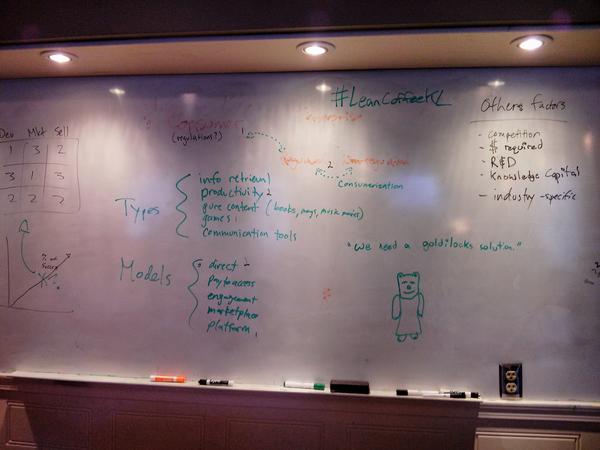 #LeanCoffeeKL
Consumer
(regulations?)
1
Enterprise
Regular 2
Consumerization
Dev Mkt Sell
1 3 2
3 1 3
2 2 2
Types
info retrieval
productivity 2
pure content (books, mags, music, movies)
games 1
communication tools
Models
direct 2
pay to access
engagement
marketplace
platform 1
"we need a goldilocks solution."
Others factors
- competition
- $ required
- R&D
- Knowledge Capital
- industry-specific